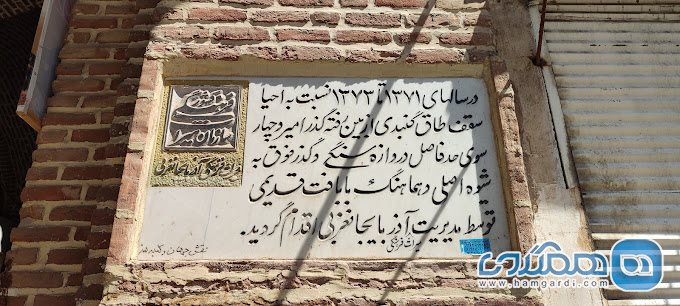 در سالهای ۱۳۷۱ تا ۱۳۷۳ نسبت به احیا
سقف طاق گنبدی از بین رفته گذر امیر و چهار
سوی حد فاصل دروازه سنگی و گذر فوق به
شیوه اصلی و هماهنگ با بافت قدیمی
توسط مدیریت میراث فرهنگی آذربایجانغربی اقدام گردید.
میراث فرهنگی آذربایجانغربی
همگردی
www.hamgardi.com